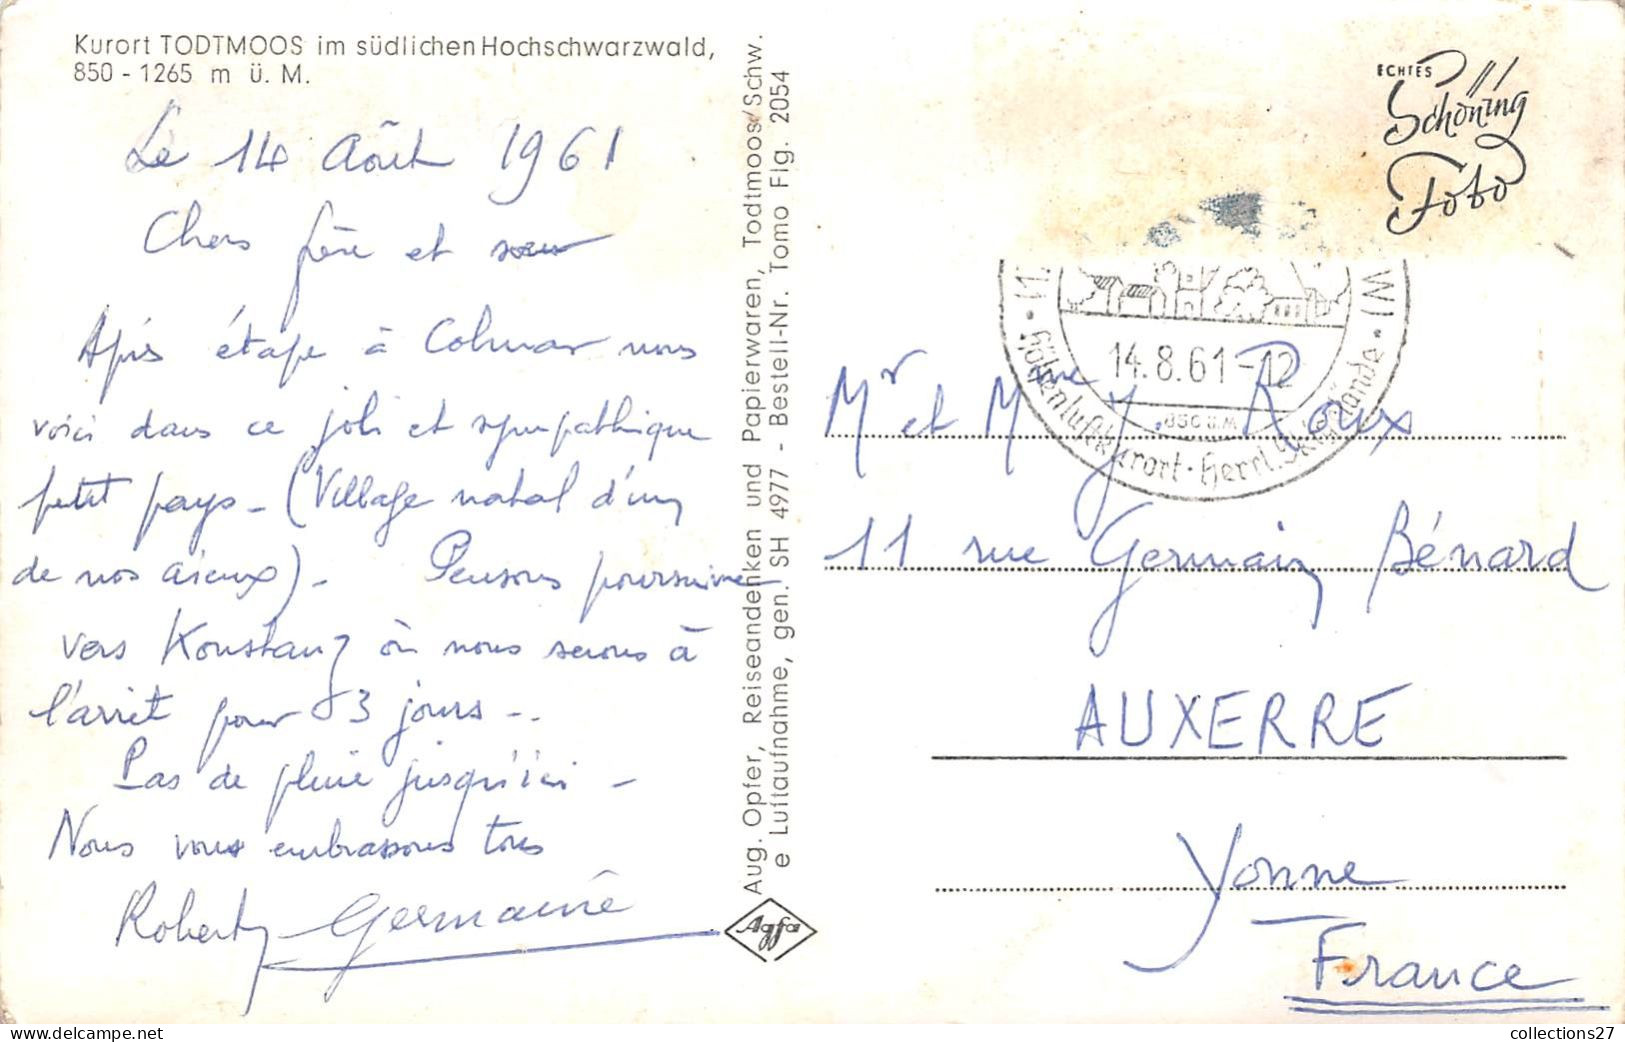 Kurort TODTMOOS im südlichen Hochschwarzwald,
850 - 1265 m ü. M.
Le 14 Août 1961
Chers frère et sœur
Après étape à Colmar nous
voici dans ce joli et sympathique
petit pays - (Village natal d'un
de nos aïeux) - Pensons poursuivre
vers Konstanz où nous serons à
l'arrêt pour 3 jours -.
Pas de pluie jusqu'ici -
Nous vous embrassons tous
Robert Germaine
Aug. Opfer, Reiseandenken und Papierwaren, Todtmoos/Schw.
e Luftaufnahme, gen. SH 4977 - Bestell-Nr. Tomo Flg. 2054
Agfa
ECHTES
Schöning
Foto
14.8.61-12
850 ü.M
Höhenluftkurort · Herrl. Skigelände
Mr et Mme J. Roux
11 rue Germain Bénard
AUXERRE
Yonne
France
collections27